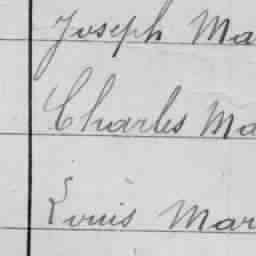 Joseph Ma
Charles Ma
Louis Mar